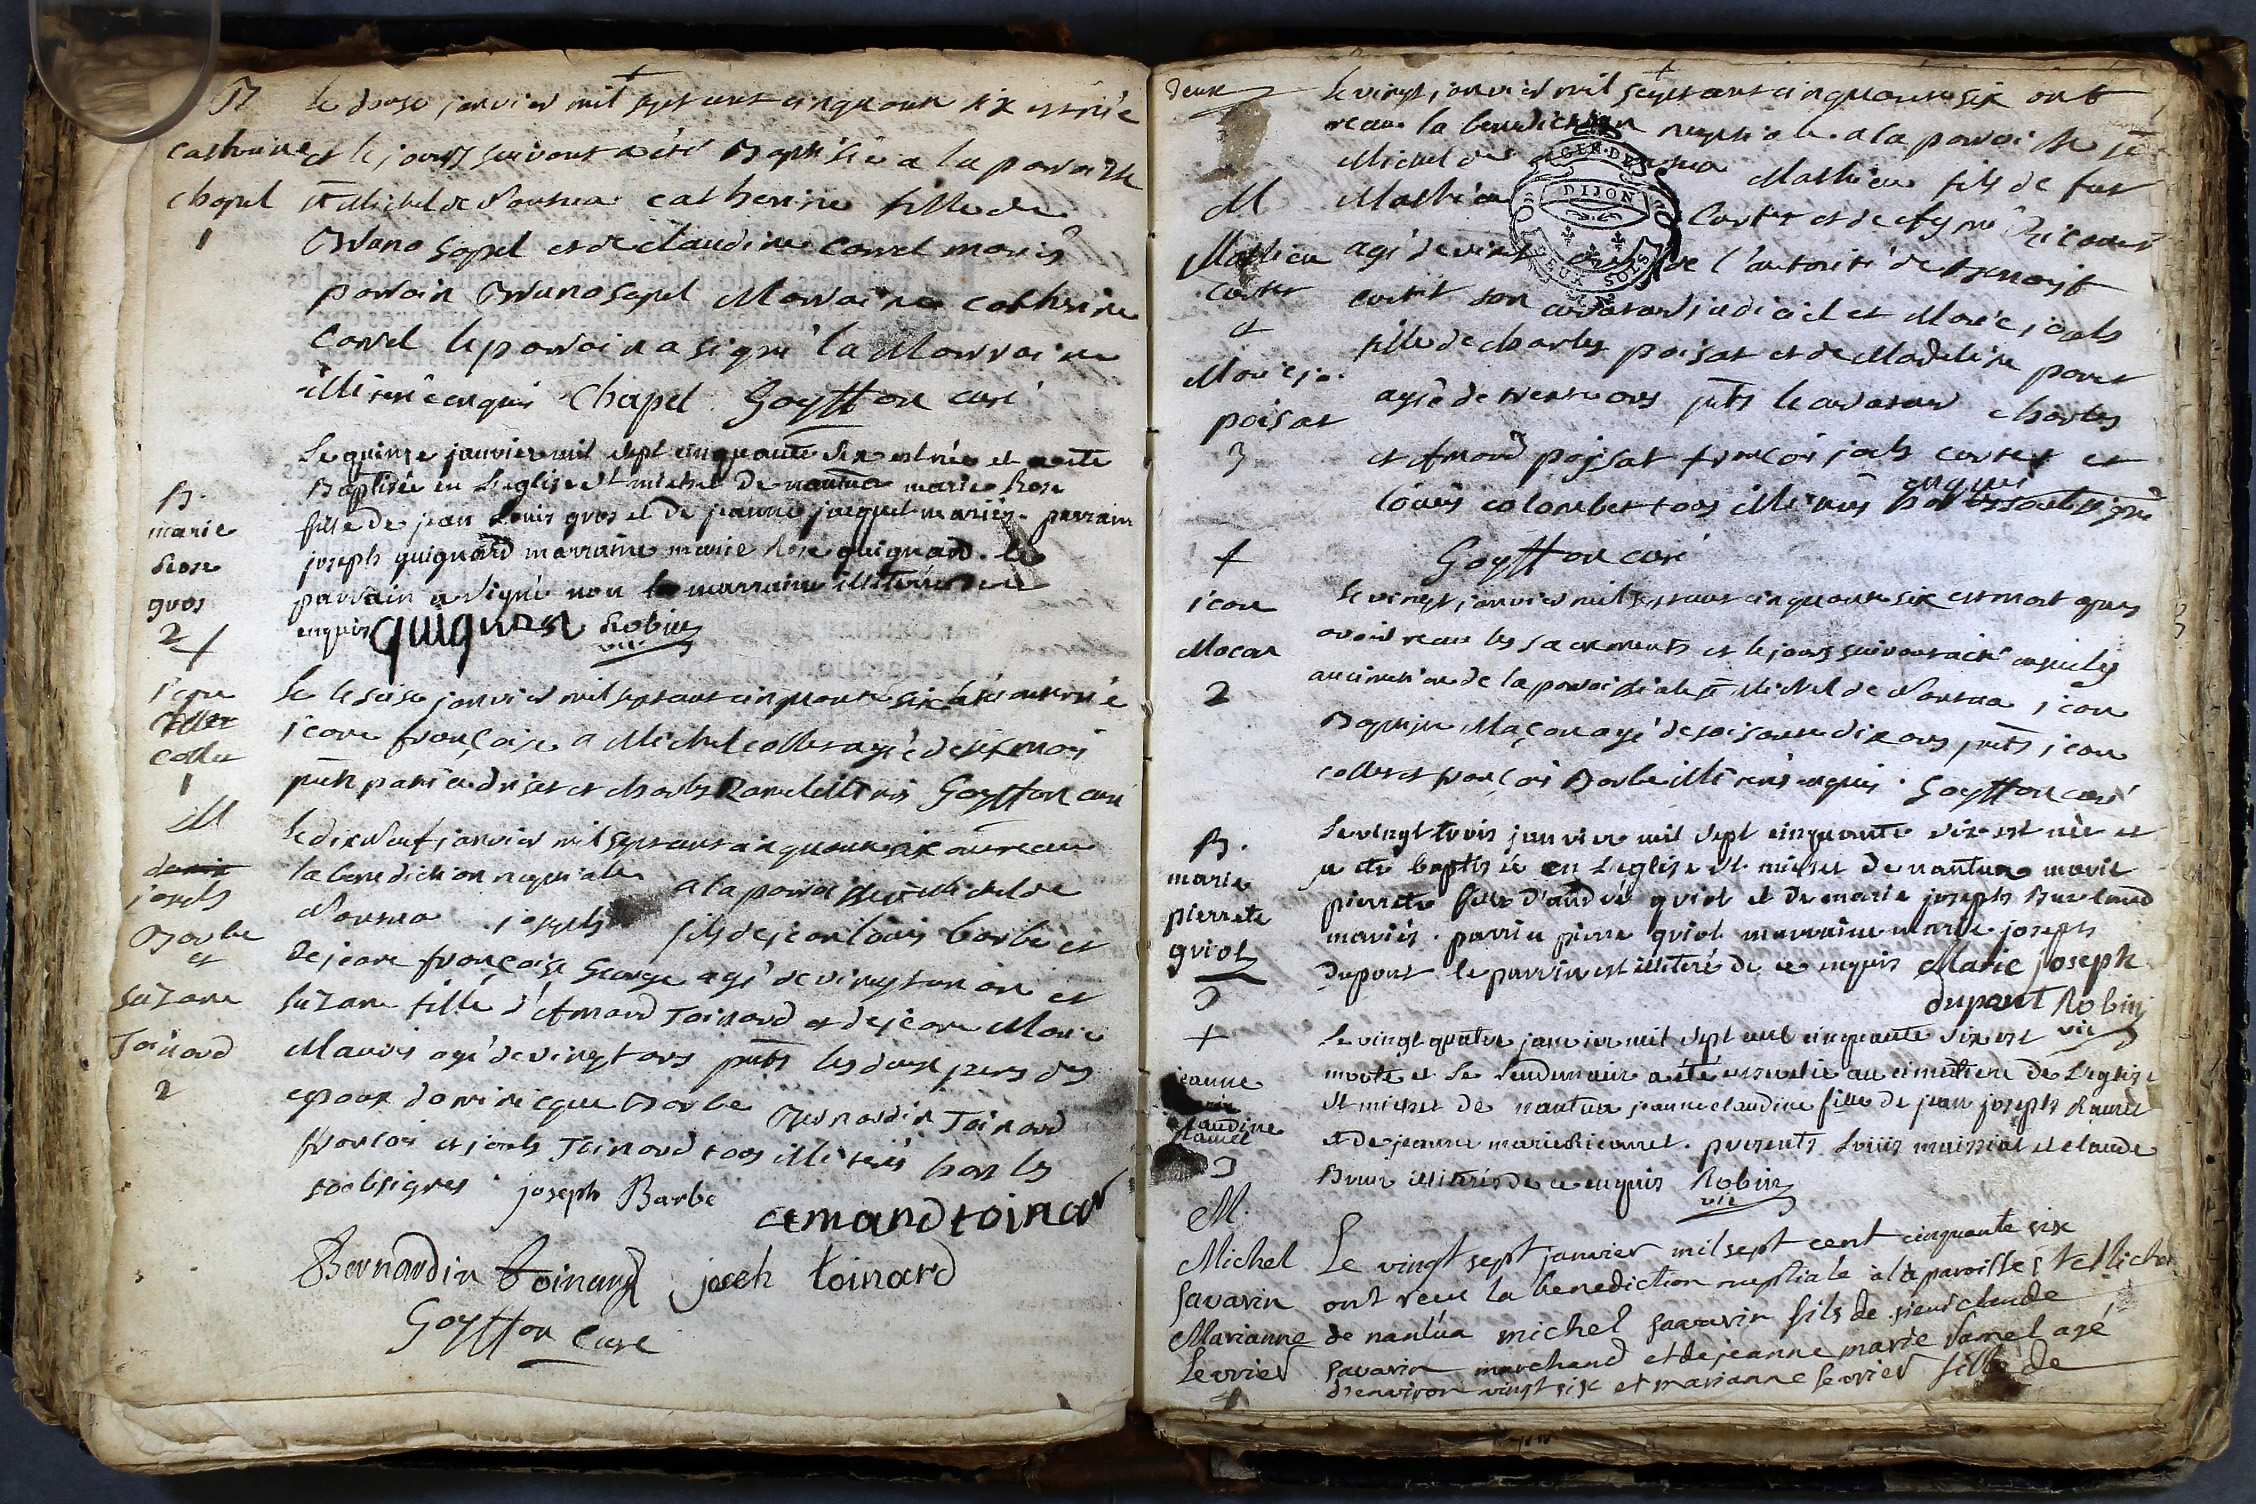 B
catherine
chapel
1
le douse janvier mil sept cent cinquante six est née
et le jours suivant a été Baptisée a la paroisse
st Michel de Nantua catherine fille de
Bruno Sapel et de claudine Carrel mariés
parrain Bruno Sapel Marraine catherine
Carrel le parrain a signé la Marraine
illitérée enquis Chapel Goyffon curé
B.
marie
Rose
gros
2
Le quinze janvier mil sept cinquante six est née et a été
Baptisée en L'eglise st michel De nantua marie Rose
fille de jean Louis gros et De jeanne jacquet mariés. parrain
joseph guignard marraine marie Rose guignard. le
parrain a signé non la marraine illiterée de ce
enquis guignard Robin
vic
jeane
collet
1
le seise janvier mil sept cent cinquante six a été enterrée
jeane françoise a Michel collet agée de six mois
illiterés Goyffon curé
M
joseph
Barbe
et
Suzane
Toinard
2
le dix Neuf janvier mil sept cent cinquante six ont receu
la benediction nuptiale a la paroisse st Michel de
Nantua joseph fils de jean louis barbe et
de jeane françoise George agé de vingt un an et
Suzane fille d'Amand Toinard et de jeane Marie
Mauris agé de vingt ans pnts les deux peres des
epoux dominicque Barbe Bernardin Toinard
francois et josph Toinard tous illiterés hors les
soubsignes joseph Barbe
amand toinar
Bernardin toinard joseh toinard
Goyffon Curé
deux
M
Mathieu
cartet
et
Marie jo.
poisat
3
le vingt janvier mil sept cent cinquante six ont
receu la benediction nuptiale a la paroisse st
Michel de Mathieu fils de feu
Mathieu Cartet et de
agé de vingt de l'autorité de Benoist
cartet son curateur judiciel et Marie josph
fille de charles poisat et de Madeleine
agée de trente ans pnts le curateur charles
et Amand poisat françois josph cartet et
louis colomber tous illiterés enquis
Goyffon curé
GEN. DE
DIJON
DEUX SOLS
jean
Macon
2
le vingt janvier mil sept cent cinquante six est mort apres
avoir receu les sacrements et le jours suivant a été enseveli
au cimetiere de la paroissiale st Michel de Nantua jean
Baptiste Maçon agé de soisante dix ans pnts jean
collet et françois Barbe illiterés enquis. Goyffon curé
B.
marie
pierrete
guiot
3
Le vingt trois janvier mil sept cinquante six est née et
a été baptisée en L'eglise st. michel de nantua marie
pierrete fille d'andré guiot et De marie joseph
mariés. parrin pierre guiot marraine marie joseph
dupont. le parrin est illiteré de ce enquis Marie joseph
dupont Robin
vic
jeanne
claudine
Ramel
3
Le vingt quatre janvier mil sept cent cinquante six est
morte et Le Lendemain a été ensevelie au cimetiere De L'eglise
st michel De nantua jeanne claudine fille De jean joseph Ramel
et De jeanne marie. presents Louis et claude
illiterés de ce enquis Robin
vic
M.
Michel
Savarin
Marianne
Levrier
4
Le vingt sept janvier mil sept cent cinquante six
ont receu la benediction nuptiale a la paroisse st Michel
de nantua michel savarin fils de sieur claude
savarin marchand et de jeanne marie Ramel agé
d'environ vingt six et marianne levrier fille de